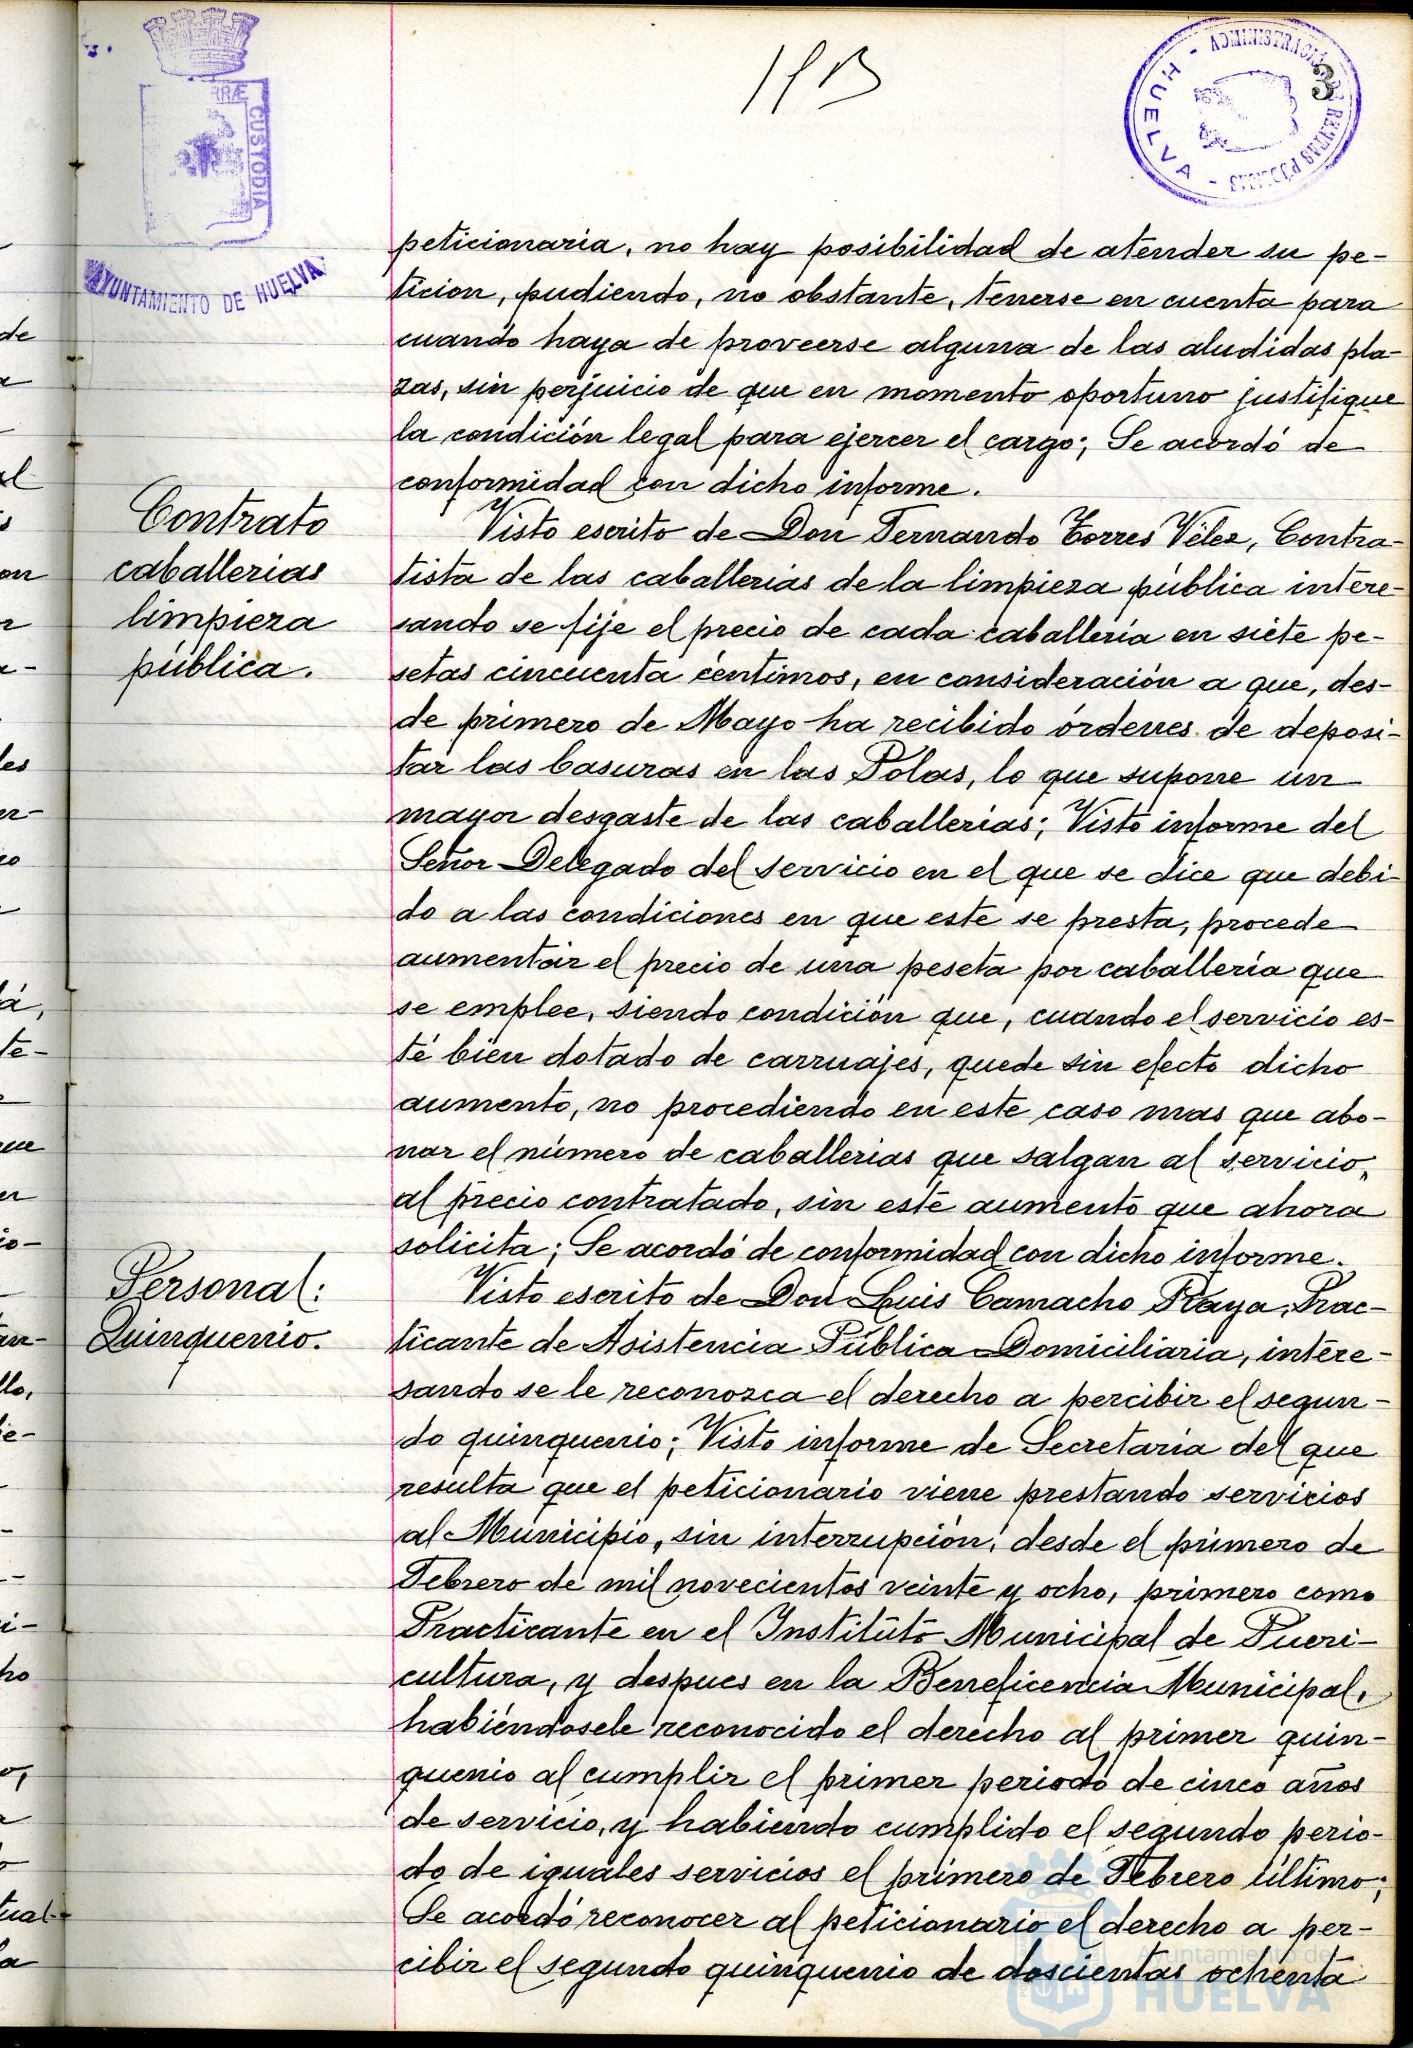 3
ADMINISTRACIÓN DE RENTAS PÚBLICAS
- HUELVA -
RRÆ CUSTODIA
AYUNTAMIENTO DE HUELVA
peticionaria, no hay posibilidad de atender su pe-
ticion, pudiendo, no obstante, tenerse en cuenta para
cuando haya de proveerse alguna de las aludidas pla-
zas, sin perjuicio de que en momento oportuno justifique
la condición legal para ejercer el cargo; Se acordó de
conformidad con dicho informe.
Contrato
caballerias
limpieza
pública.
Visto escrito de Don Fernando Torres Vélez, Contra-
tista de las caballerias de la limpieza pública intere-
sando se fije el precio de cada caballería en siete pe-
setas cincuenta céntimos, en consideración a que, des-
de primero de Mayo ha recibido órdenes de deposi-
tar las basuras en las Polas, lo que supone un
mayor desgaste de las caballerías; Visto informe del
Señor Delegado del servicio en el que se dice que debi-
do a las condiciones en que este se presta, procede
aumentar el precio de una peseta por caballería que
se emplee, siendo condición que, cuando el servicio es-
té bien dotado de carruajes, quede sin efecto dicho
aumento, no procediendo en este caso mas que abo-
nar el número de caballerias que salgan al servicio,
al precio contratado, sin este aumento que ahora
solicita; Se acordó de conformidad con dicho informe.
Personal:
Quinquenio.
Visto escrito de Don Luis Camacho Raya, Prac-
ticante de Asistencia Pública Domiciliaria, intere-
sando se le reconozca el derecho a percibir el segun-
do quinquenio; Visto informe de Secretaria del que
resulta que el peticionario viene prestando servicios
al Municipio, sin interrupción, desde el primero de
Febrero de mil novecientos veinte y ocho, primero como
Practicante en el Instituto Municipal de Pueri-
cultura, y despues en la Beneficencia Municipal,
habiéndosele reconocido el derecho al primer quin-
quenio al cumplir el primer periodo de cinco años
de servicio, y habiendo cumplido el segundo perio-
do de iguales servicios el primero de Febrero último;
Se acordó reconocer al peticionario el derecho a per-
cibir el segundo quinquenio de doscientas ochenta
Ayuntamiento de
HUELVA